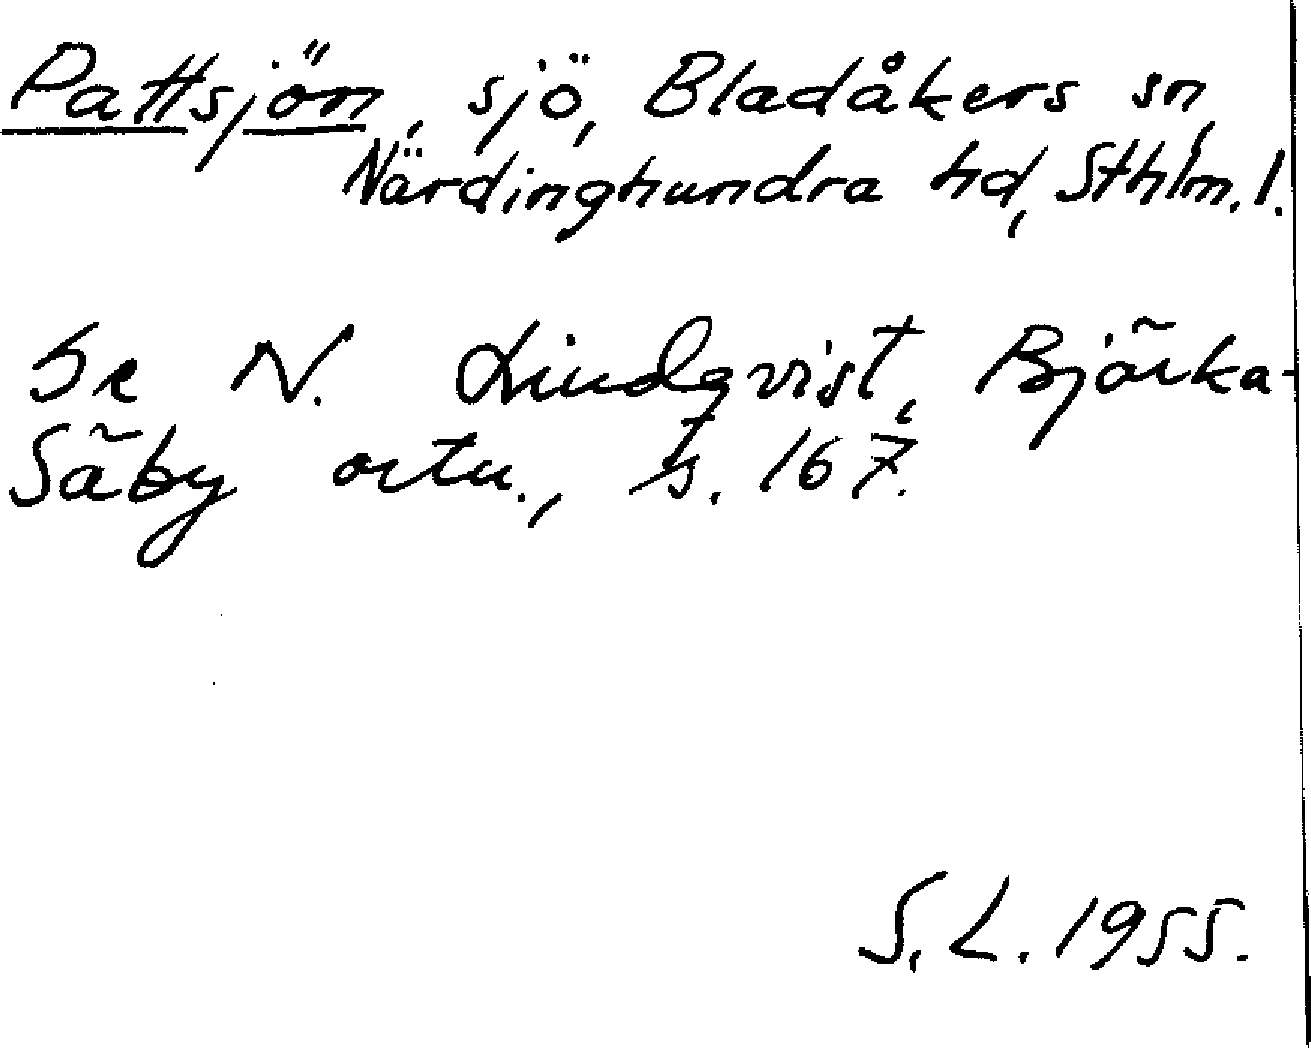 Pattsjön, sjö, Bladåkers sn,
Närdinghundra hd, Sthlm. l.
Se N. Lindqvist, Bjärka-
Säby ortn., s. 167.
S. L. 1955.